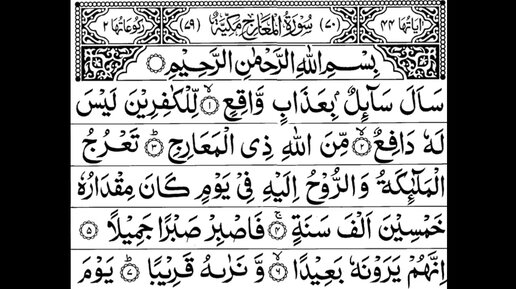 اٰیَاتُهَا ۴۴ (۷۰) سُوْرَةُ الْمَعَارِجِ مَكِّیَّةٌ (۷۹) رُكُوْعَاتُهَا ۲
بِسْمِ اللّٰهِ الرَّحْمٰنِ الرَّحِیْمِ
سَاَلَ سَآئِلٌۢ بِعَذَابٍ وَّاقِعٍ ۱ لِّلْكٰفِرِیْنَ لَیْسَ
لَهٗ دَافِعٌ ۲ مِّنَ اللّٰهِ ذِی الْمَعَارِجِ ۳ تَعْرُجُ
الْمَلٰٓئِكَةُ وَالرُّوْحُ اِلَیْهِ فِیْ یَوْمٍ كَانَ مِقْدَارُهٗ
خَمْسِیْنَ اَلْفَ سَنَةٍ ۴ فَاصْبِرْ صَبْرًا جَمِیْلًا ۵
اِنَّهُمْ یَرَوْنَهٗ بَعِیْدًا ۶ وَّنَرٰىهُ قَرِیْبًا ۷ یَوْمَ